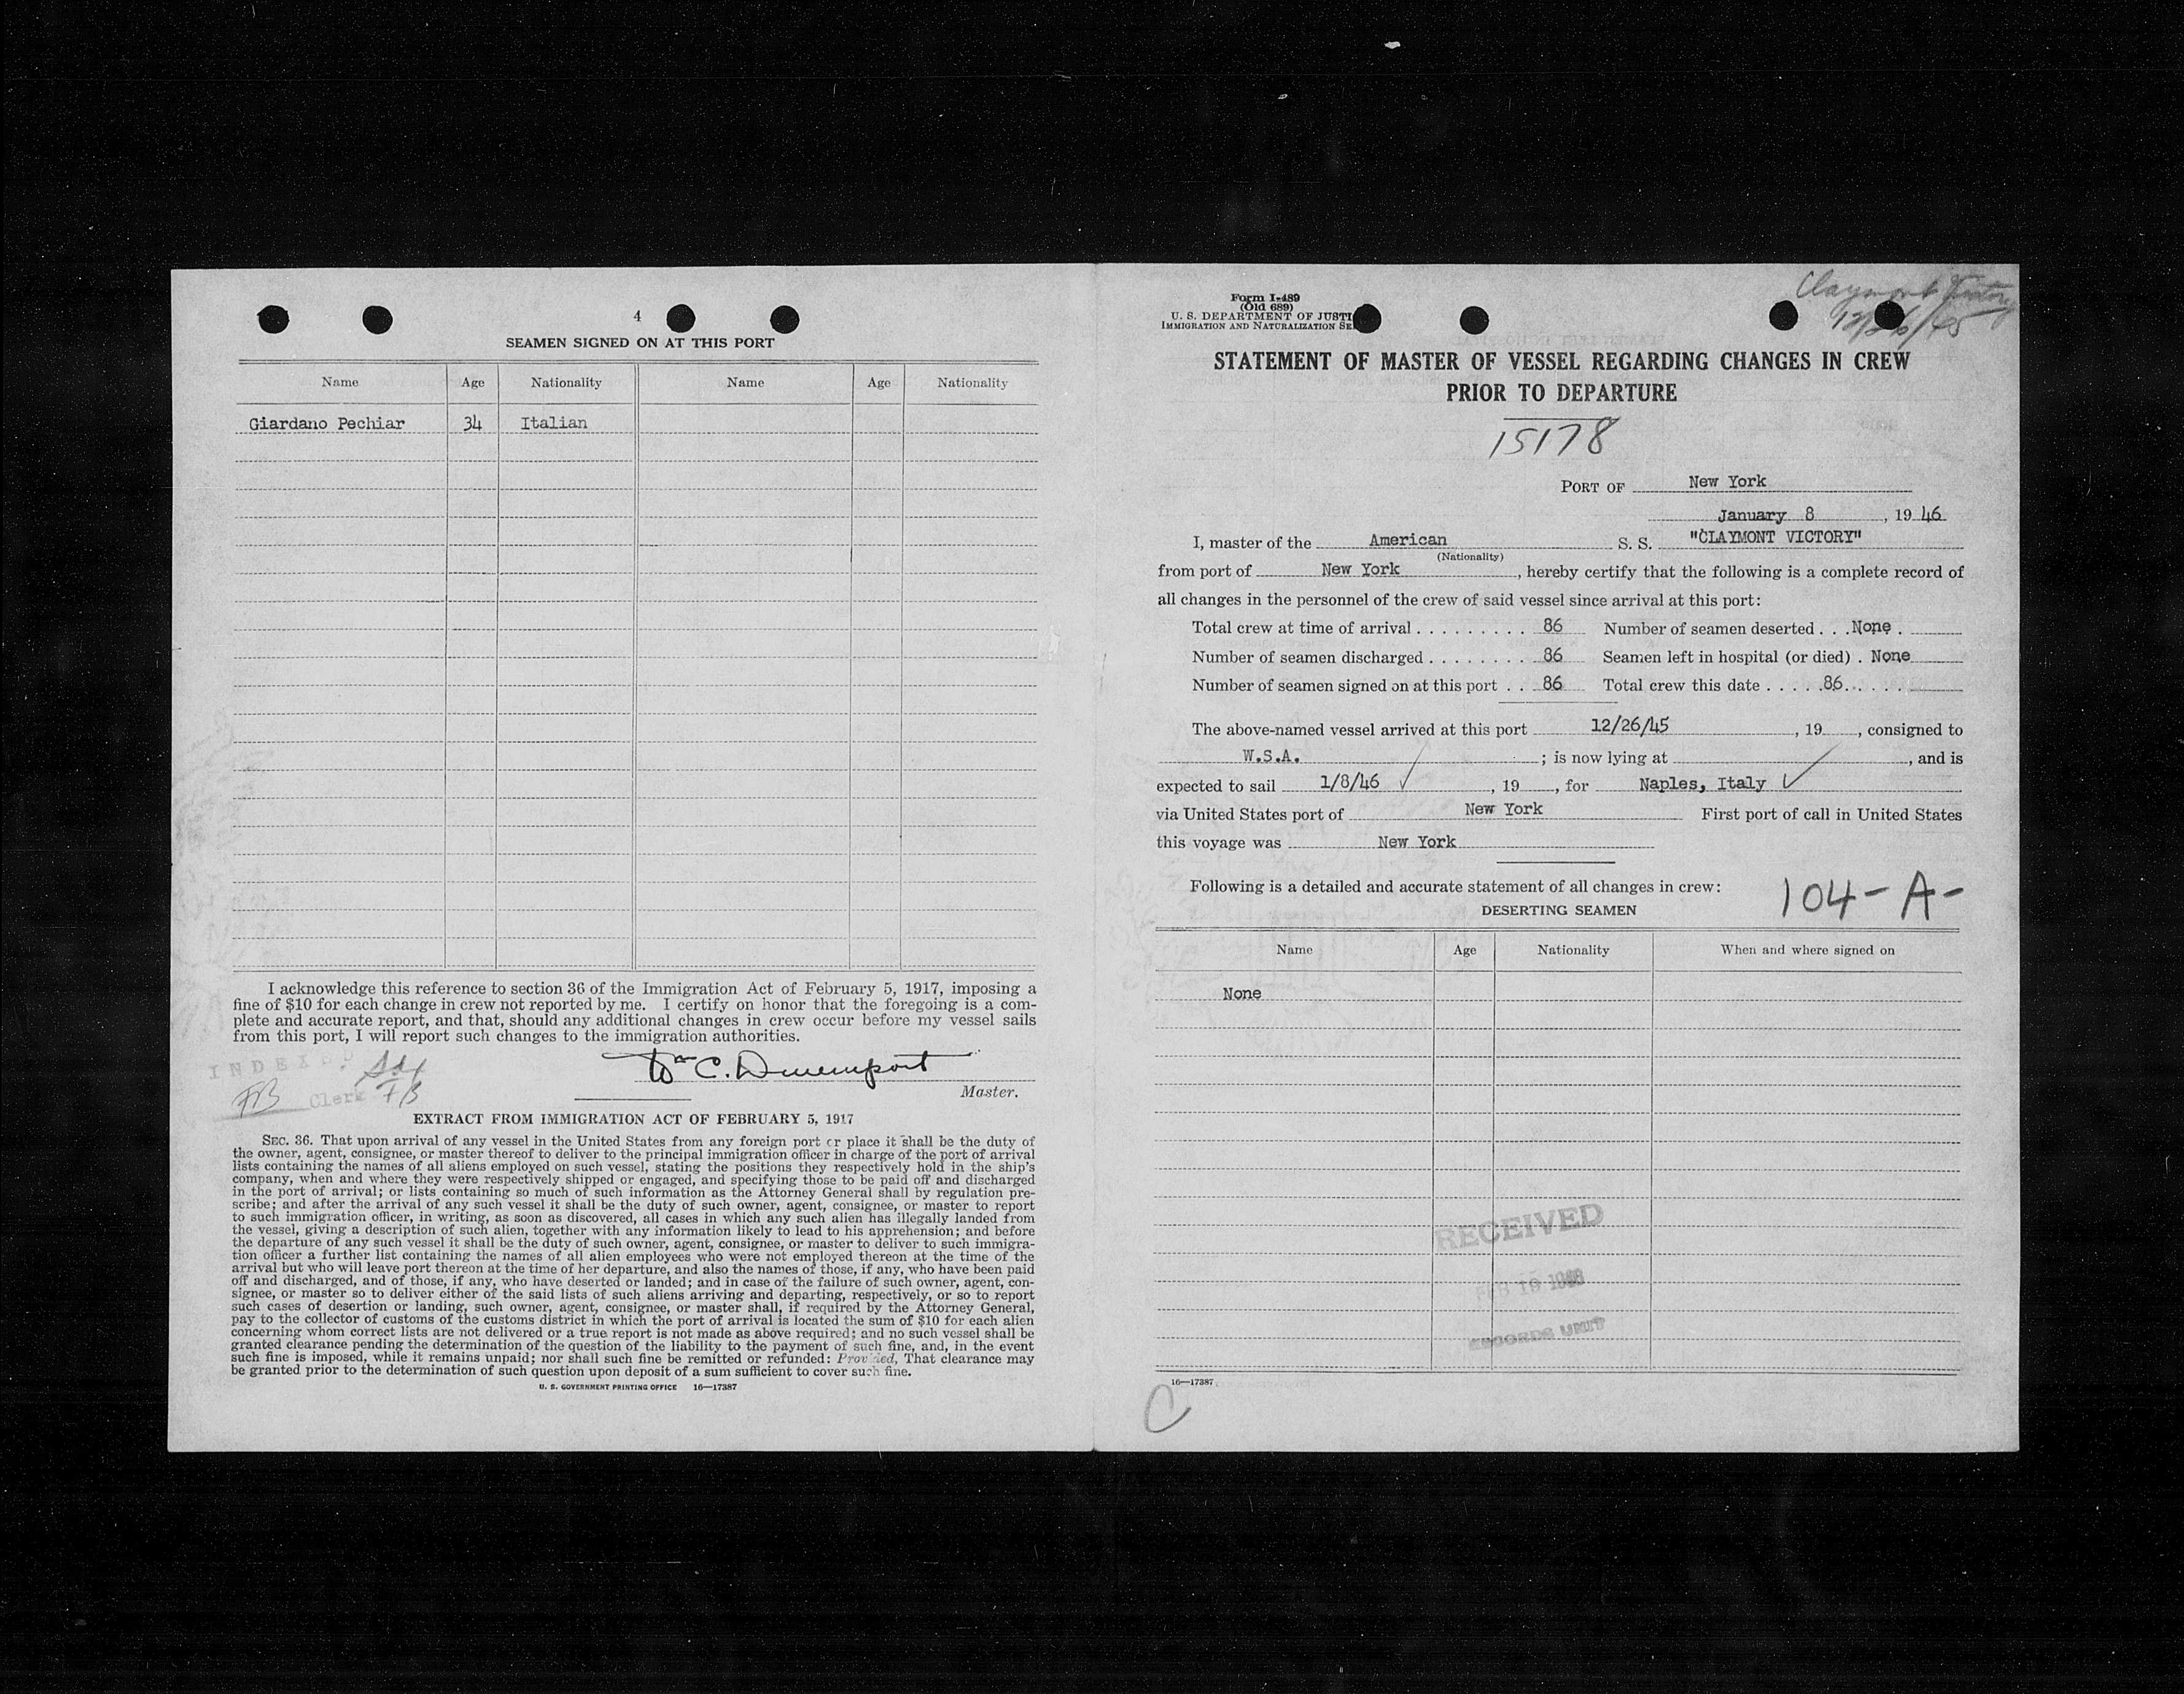 4
SEAMEN SIGNED ON AT THIS PORT
Name Age Nationality Name Age Nationality
Giardano Pechiar 34 Italian
I acknowledge this reference to section 36 of the Immigration Act of February 5, 1917, imposing a
fine of $10 for each change in crew not reported by me. I certify on honor that the foregoing is a com-
plete and accurate report, and that, should any additional changes in crew occur before my vessel sails
from this port, I will report such changes to the immigration authorities.
Wm C. Davenport
Master.
FB Clerk FB
EXTRACT FROM IMMIGRATION ACT OF FEBRUARY 5, 1917
SEC. 36. That upon arrival of any vessel in the United States from any foreign port or place it shall be the duty of
the owner, agent, consignee, or master thereof to deliver to the principal immigration officer in charge of the port of arrival
lists containing the names of all aliens employed on such vessel, stating the positions they respectively hold in the ship's
company, when and where they were respectively shipped or engaged, and specifying those to be paid off and discharged
in the port of arrival; or lists containing so much of such information as the Attorney General shall by regulation pre-
scribe; and after the arrival of any such vessel it shall be the duty of such owner, agent, consignee, or master to report
to such immigration officer, in writing, as soon as discovered, all cases in which any such alien has illegally landed from
the vessel, giving a description of such alien, together with any information likely to lead to his apprehension; and before
the departure of any such vessel it shall be the duty of such owner, agent, consignee, or master to deliver to such immigra-
tion officer a further list containing the names of all alien employees who were not employed thereon at the time of the
arrival but who will leave port thereon at the time of her departure, and also the names of those, if any, who have been paid
off and discharged, and of those, if any, who have deserted or landed; and in case of the failure of such owner, agent, con-
signee, or master so to deliver either of the said lists of such aliens arriving and departing, respectively, or so to report
such cases of desertion or landing, such owner, agent, consignee, or master shall, if required by the Attorney General,
pay to the collector of customs of the customs district in which the port of arrival is located the sum of $10 for each alien
concerning whom correct lists are not delivered or a true report is not made as above required; and no such vessel shall be
granted clearance pending the determination of the question of the liability to the payment of such fine, and, in the event
such fine is imposed, while it remains unpaid; nor shall such fine be remitted or refunded: Provided, That clearance may
be granted prior to the determination of such question upon deposit of a sum sufficient to cover such fine.
U. S. GOVERNMENT PRINTING OFFICE 16—17387
Form I-489
(Old 689)
U. S. DEPARTMENT OF JUSTI
IMMIGRATION AND NATURALIZATION SE
Claymont Victory
12/26/45
STATEMENT OF MASTER OF VESSEL REGARDING CHANGES IN CREW
PRIOR TO DEPARTURE
15178
PORT OF New York
January 8, 19 46
I, master of the American S. S. "CLAYMONT VICTORY"
(Nationality)
from port of New York, hereby certify that the following is a complete record of
all changes in the personnel of the crew of said vessel since arrival at this port:
Total crew at time of arrival . . . . . . . . . 86 Number of seamen deserted . . . None .
Number of seamen discharged . . . . . . . . 86 Seamen left in hospital (or died) . None
Number of seamen signed on at this port . . 86 Total crew this date . . . . . 86 . . . . .
The above-named vessel arrived at this port 12/26/45, 19 , consigned to
W.S.A. ; is now lying at , and is
expected to sail 1/8/46 ✓, 19 , for Naples, Italy ✓
via United States port of New York First port of call in United States
this voyage was New York
Following is a detailed and accurate statement of all changes in crew:
104-A-
DESERTING SEAMEN
Name Age Nationality When and where signed on
None
RECEIVED
RECORDS UNIT
16—17387
C